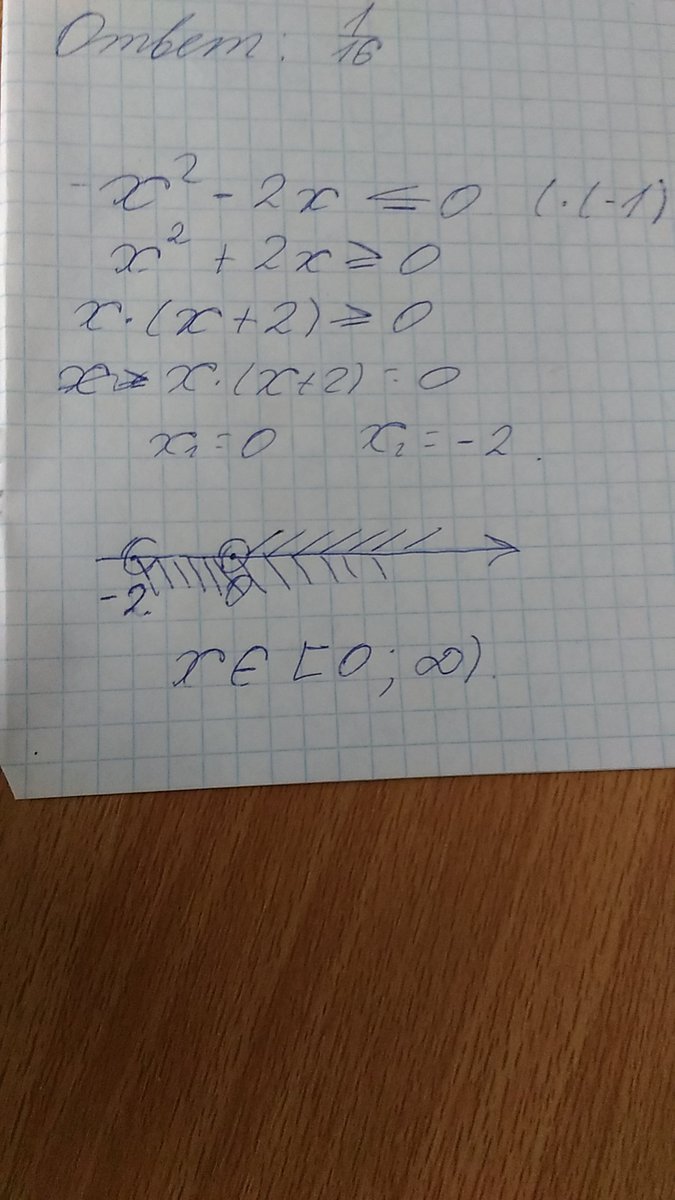 Ответ: 1/16
-x² - 2x ≤ 0 (·(-1)
x² + 2x ≥ 0
x·(x+2) ≥ 0
x·(x+2) = 0
x₁ = 0 x₂ = -2.
-2. 0
x ∈ [0; ∞).